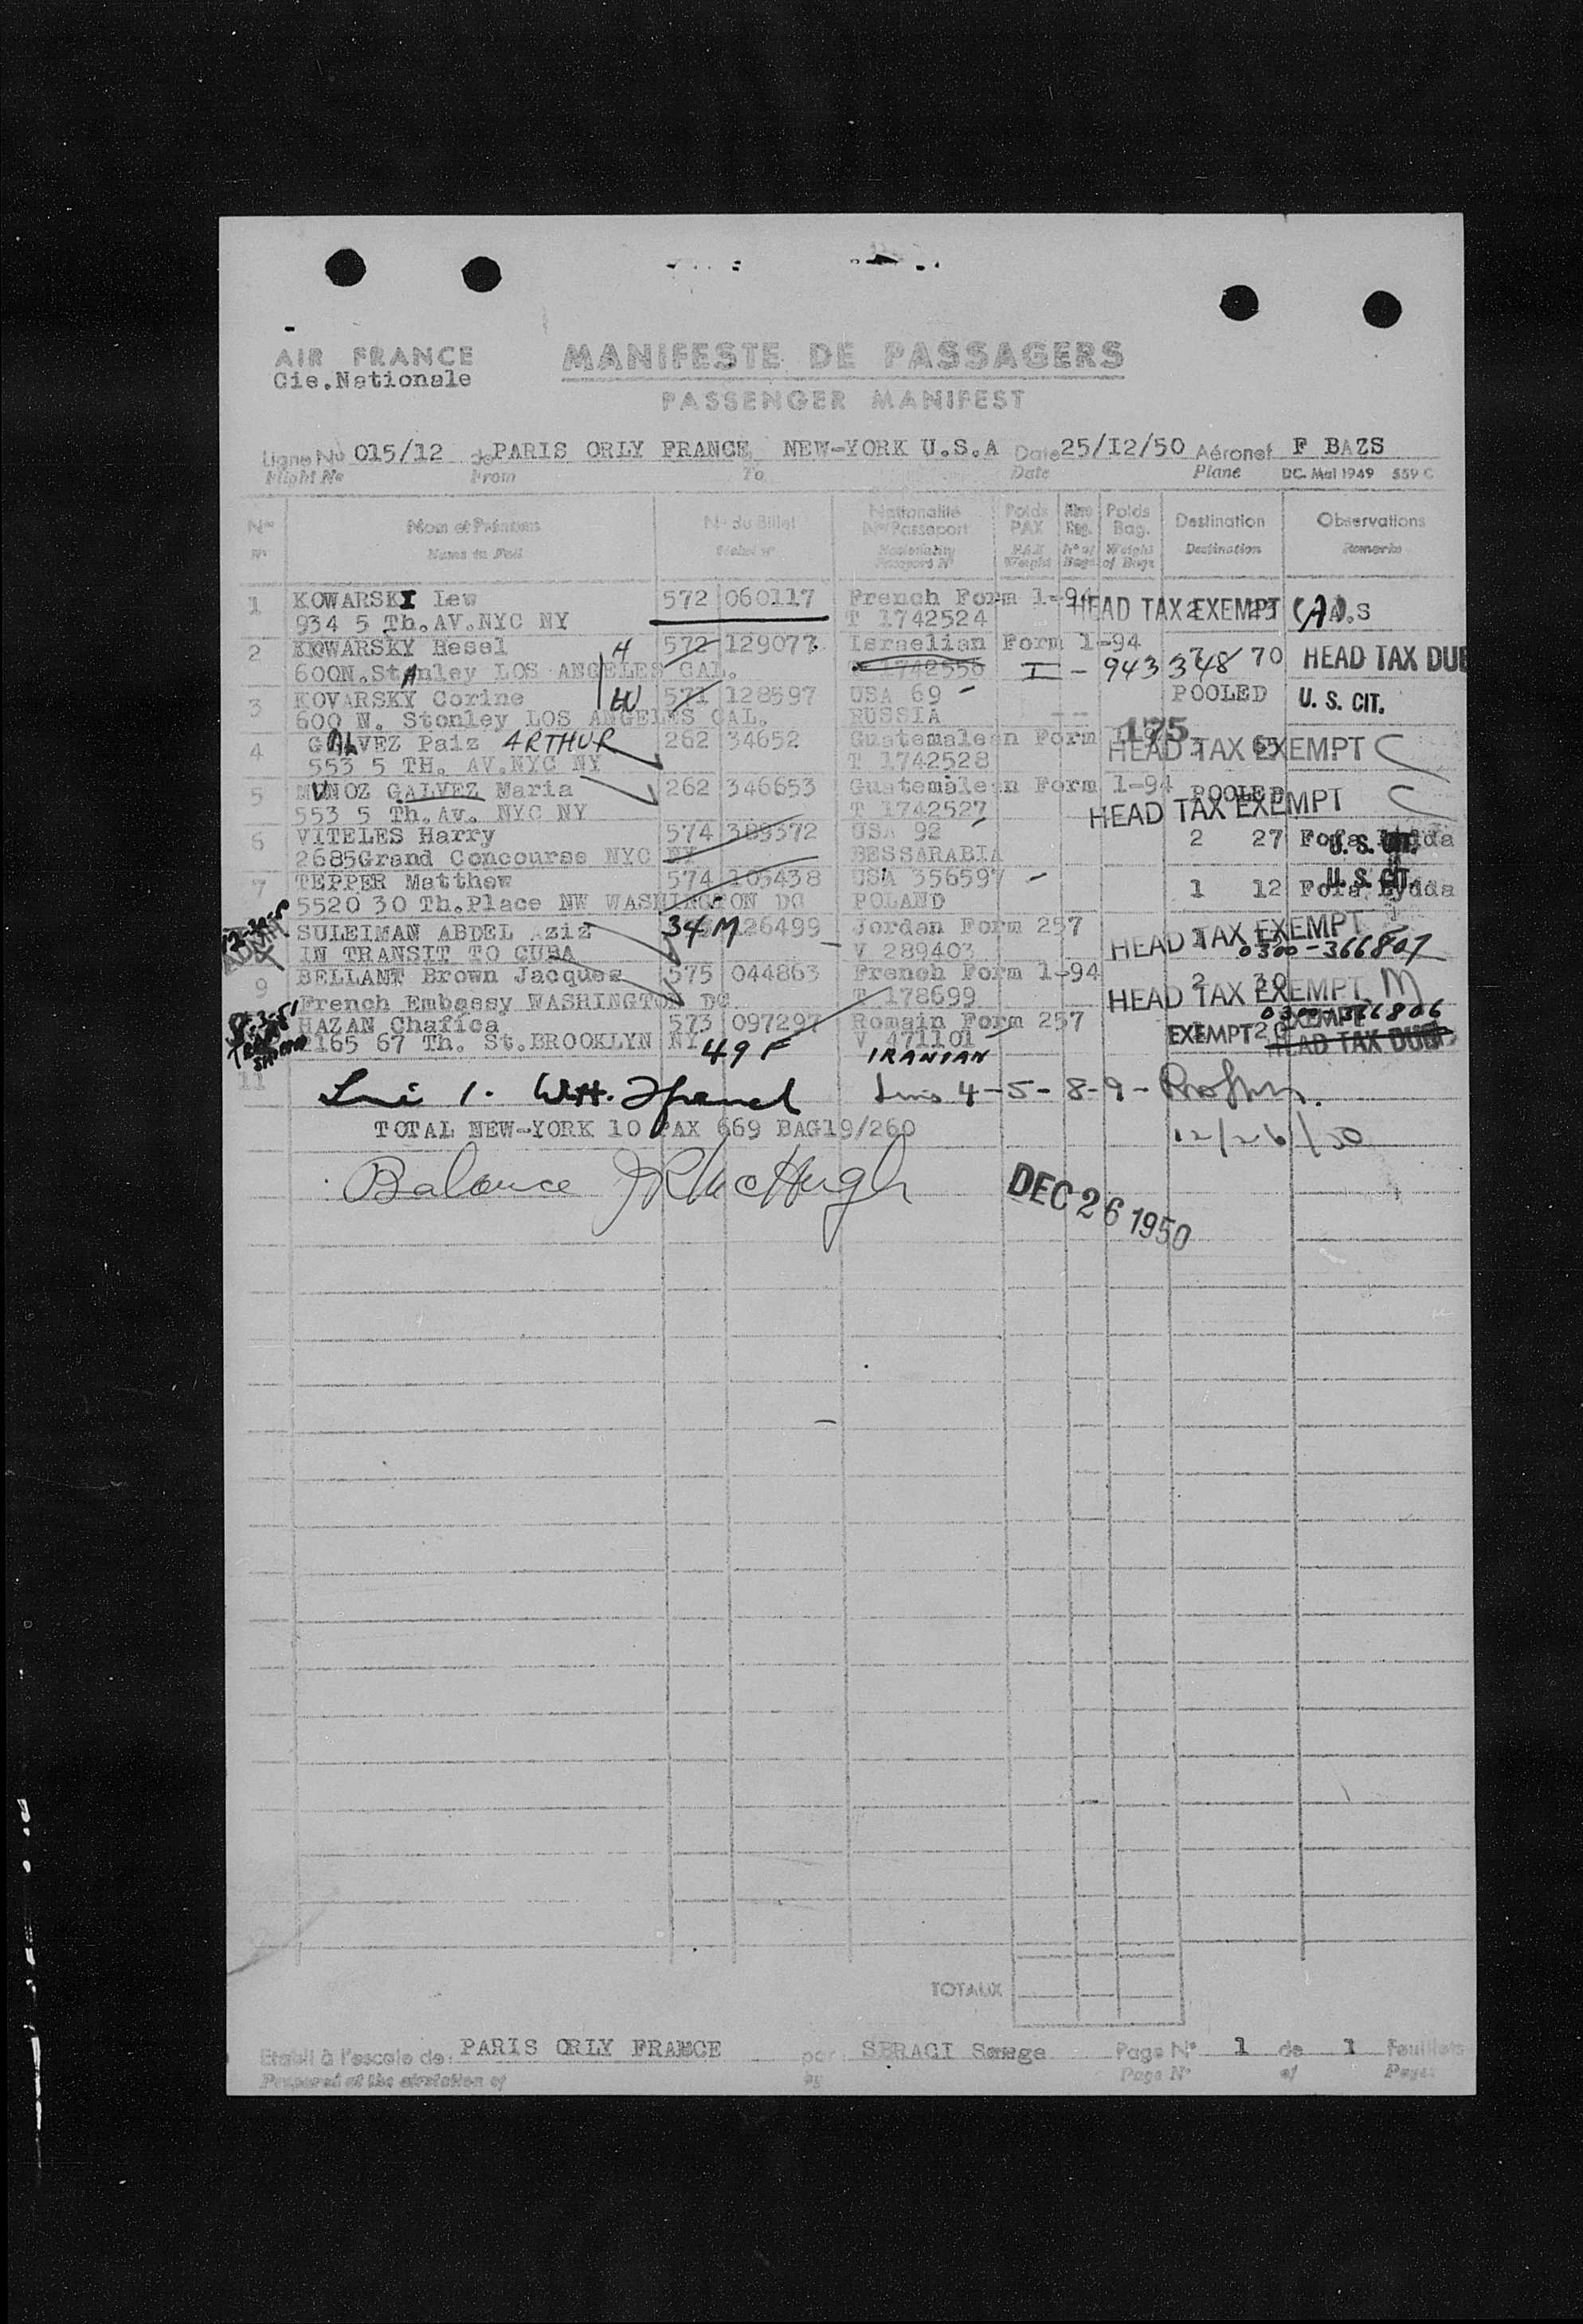 AIR FRANCE
Cie.Nationale
MANIFESTE DE PASSAGERS
PASSENGER MANIFEST
Ligne No 015/12 de PARIS ORLY FRANCE NEW-YORK U.S.A Date 25/I2/50 Aéronef F BAZS
Flight No From To Date Plane DC. Mai 1949 559 C
Nos Nom et Prénoms No du Billet Nationalité No Passeport Poids PAX Nbre Bag. Poids Bag. Destination Observations
No Name in Full Ticket No Nationality Passport No PAX Weight No of Bags Weight of Bags Destination Remarks
1 KOWARSKI Lew 572 060117 French Form 1-94 HEAD TAX EXEMPT (A).S
934 5 Th.AV.NYC NY T 1742524
2 KOWARSKY Hesel H 572 129077 Israelian Form 1-94
600N.StAnley LOS ANGELES CAL. T 1742556 I - 943348 70 HEAD TAX DUE
3 KOVARSKY Corine W 571 128597 USA 69 POOLED U. S. CIT.
600 N. Stonley LOS ANGELES CAL. RUSSIA
4 GALVEZ Paiz ARTHUR 262 34652 Guatemalean Form 175 HEAD TAX EXEMPT
553 5 TH. AV.NYC NY T 1742528
5 MUNOZ GALVEZ Maria 262 346653 Guatemalean Form 1-94 POOLED
553 5 Th.Av. NYC NY T 1742527 HEAD TAX EXEMPT
6 VITELES Harry 574 389372 USA 92 2 27 U.S. CIT.
2685Grand Concourse NYC NY BESSARABIA
7 TEPPER Matthew 574 103438 USA 356597 1 12 U.S. CIT.
5520 30 Th.Place NW WASHINGTON DC POLAND
SULEIMAN ABDEL Aziz 34 M 26499 Jordan Form 257 HEAD TAX EXEMPT
IN TRANSIT TO CUBA V 289403 0300-366807
9 BELLANT Brown Jacques 575 044863 French Form 1-94 2 30 HEAD TAX EXEMPT M
French Embassy WASHINGTON DC T 178699
HAZAN Chafica 573 097297 Romain Form 257 0300-366806
2165 67 Th. St.BROOKLYN NY 49 F V 471101 IRANIAN EXEMPT HEAD TAX DUE
11
Line 1. Lines 4-5-8-9-
TOTAL NEW-YORK 10 PAX 669 BAG19/260 12/26/50
Balance JR McHugh
DEC 26 1950
TOTAUX
Etabli à l'escale de: PARIS ORLY FRANCE par SERAGI Page No 1 de 1 Feuillets
Prepared at the airstation of by Page No of Pages